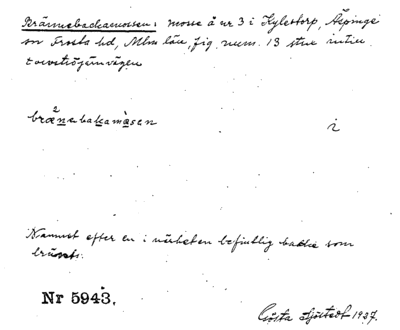 Brännebackamossen: mosse å nr 3 i Kylestorp, Äspinge
sn Frosta hd, Mlm län, fig. num. 13 strax intill
torvströjärnvägen
brænebakamåsen
2
i
Namnet efter en i närheten befintlig backe som
bränts.
Nr 5943.
Gösta Sjöstedt 1937.